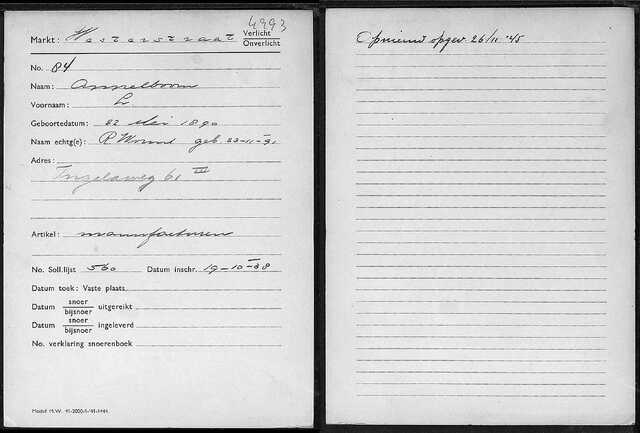 4993
Markt: Westerstraat Verlicht
Onverlicht
No. 84
Naam: Appelboom
Voornaam: L
Geboortedatum: 22 Mei 1890
Naam echtg(e): R geb 23-11-91
Adres:
61 III
Artikel: manufacturen
No. Soll.lijst 560 Datum inschr. 19-10-38
Datum toek: Vaste plaats
Datum snoer
bijsnoer uitgereikt
Datum snoer
bijsnoer ingeleverd
No. verklaring snoerenboek
Model M.W.
Opnieuw opgev. 26/11 '45